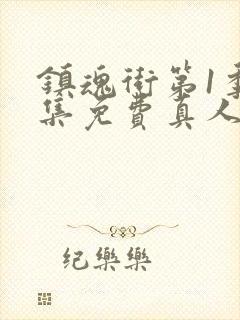 鎮魂街第1季
集免費真人
纪樂樂